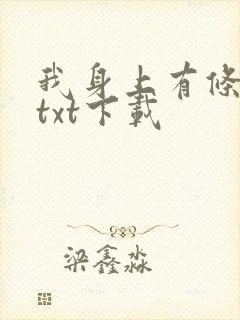 我身上有條
txt下載
梁鑫淼